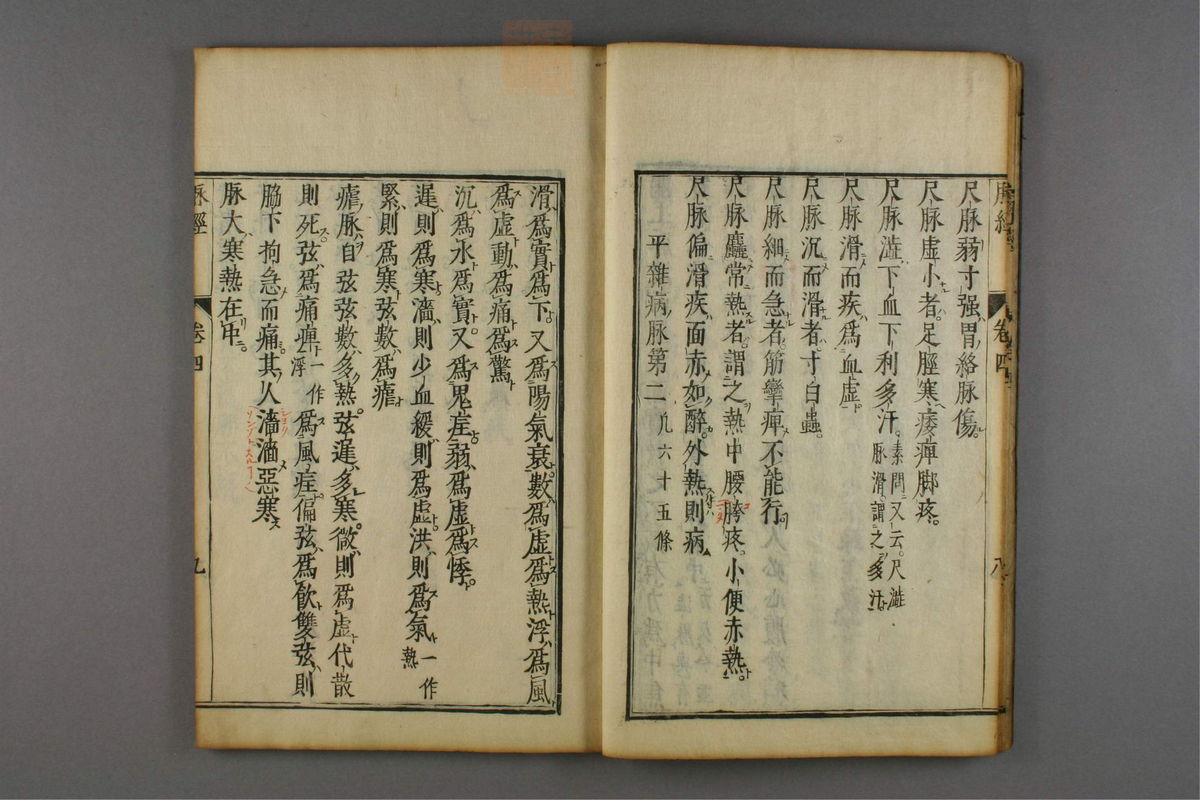 脉經 卷四 八
尺脉弱寸强胃絡脉傷
尺脉虚小者足脛寒痿痺脚疼
尺脉澁下血下利多汗素問又云尺澁脉滑謂之多汗
尺脉滑而疾爲血虚
尺脉沉而滑者寸白蟲
尺脉細而急者筋攣痺不能行
尺脉麤常熱者謂之熱中腰胯疼小便赤熱
尺脉偏滑疾面赤如醉外熱則病
平雜病脉第二凡六十五條
滑爲實爲下又爲陽氣衰數爲虚爲熱浮爲風
爲虚動爲痛爲驚
沉爲水爲實又爲鬼疰弱爲虚爲悸
遲則爲寒濇則少血緩則爲虚洪則爲氣一作熱
緊則爲寒弦數爲瘧
瘧脉自弦弦數多熱弦遲多寒微則爲虚代散
則死弦爲痛痺一作浮爲風疰偏弦爲飲雙弦則
脇下拘急而痛其人濇濇惡寒
脉大寒熱在中
脉經 卷四 九